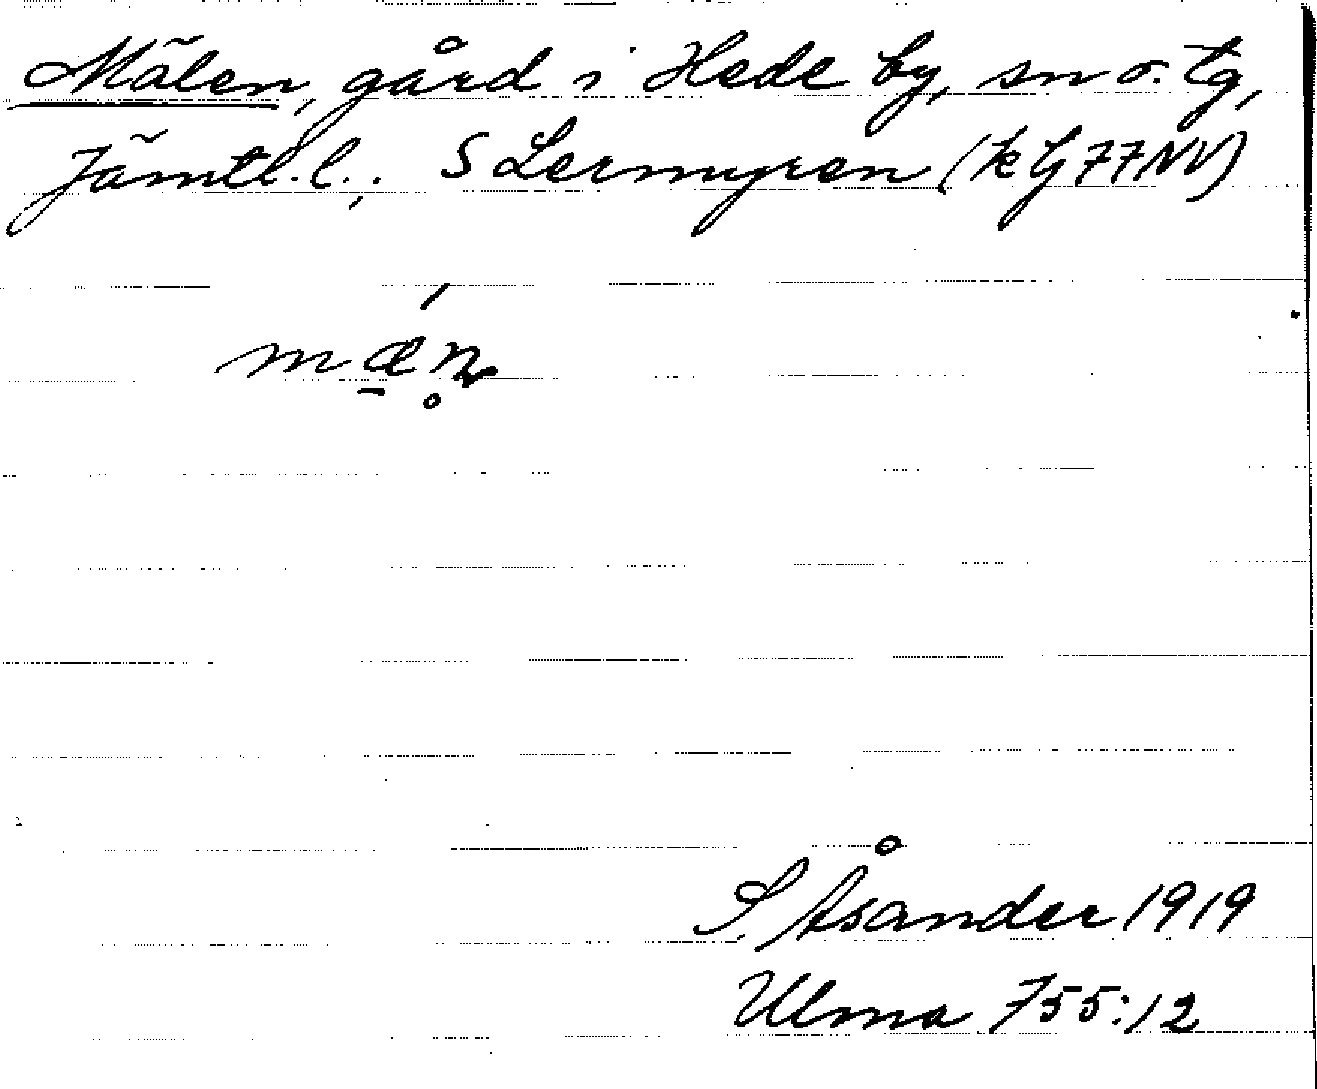 Mälen, gård i Hede by, sn o. tg,
Jämtl. l., S Lermyren (k G 77 NV)
mæ̱n̥
S. Åsander 1919
Ulma 755:12